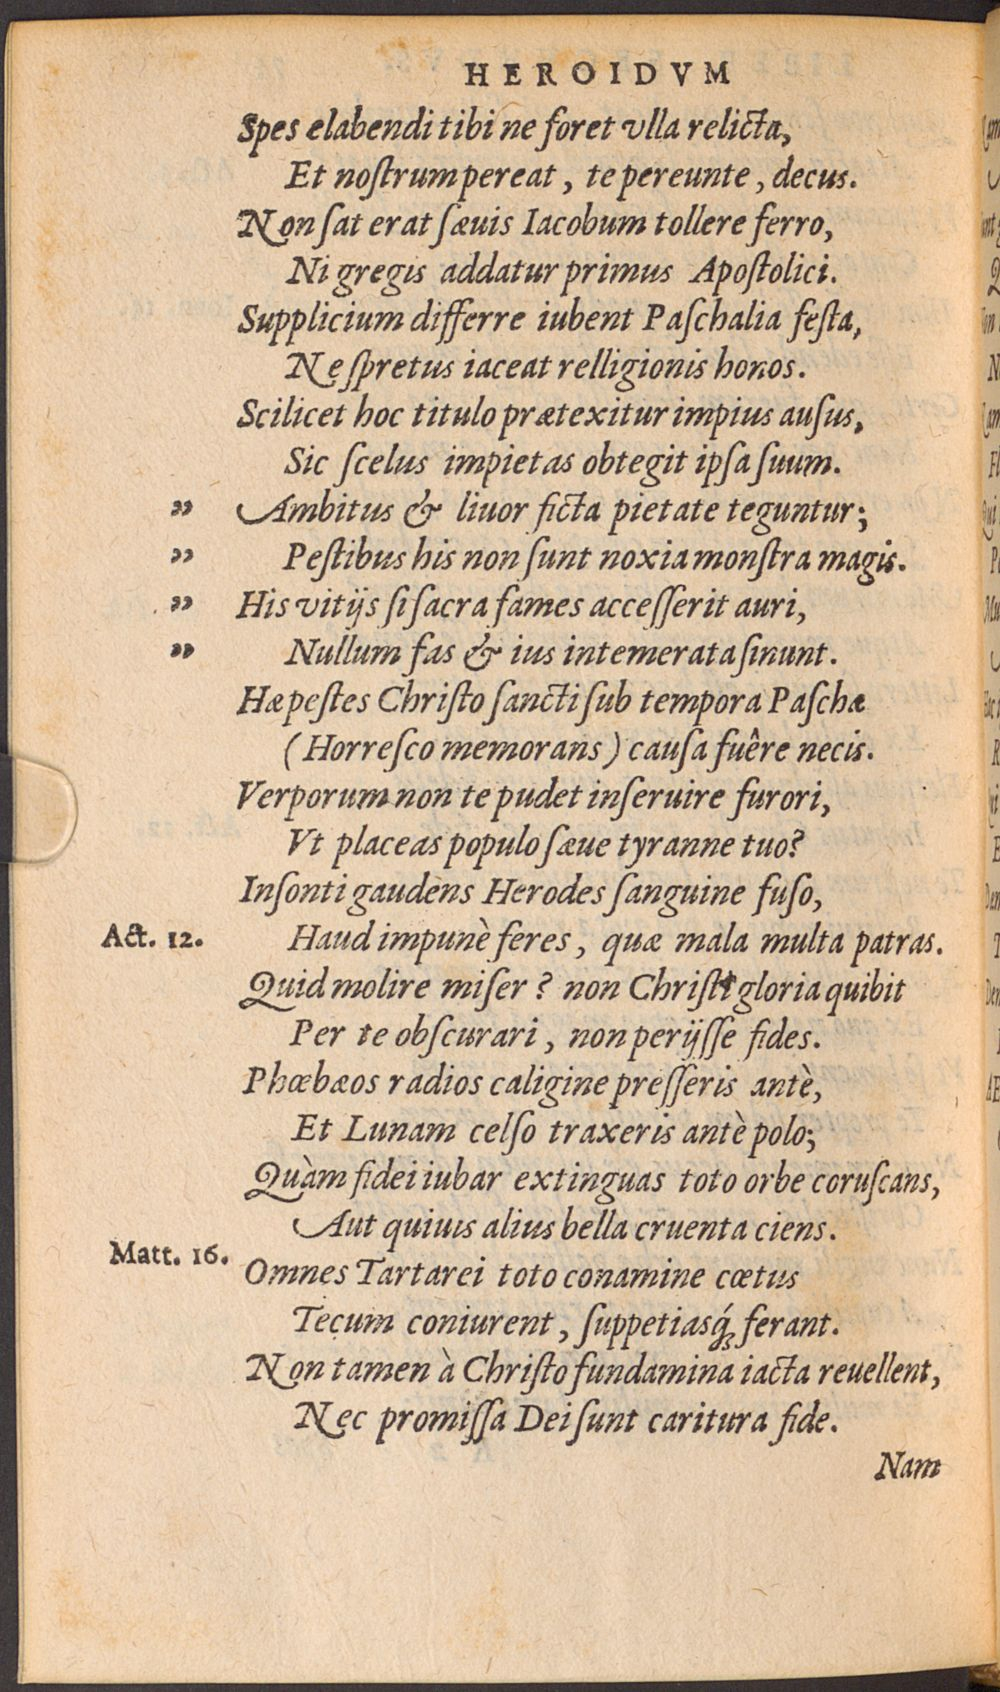 HEROIDVM
Spes elabendi tibi ne foret vlla relicta,
Et noſtrum pereat, te pereunte, decus.
Non ſat erat ſæuis Iacobum tollere ferro,
Ni gregis addatur primus Apoſtolici.
Supplicium differre iubent Paſchalia feſta,
Ne ſpretus iaceat relligionis honos.
Scilicet hoc titulo prætexitur impius auſus,
Sic ſcelus impietas obtegit ipſa ſuum.
„ Ambitus & liuor ficta pietate teguntur;
„ Peſtibus his non ſunt noxia monſtra magis.
„ His vitijs ſi ſacra fames acceſſerit auri,
„ Nullum fas & ius intemerata ſinunt.
Hæ peſtes Chriſto ſancti ſub tempora Paſchæ
(Horreſco memorans) cauſa fuêre necis.
Verporum non te pudet inſeruire furori,
Vt placeas populo ſæue tyranne tuo?
Inſonti gaudens Herodes ſanguine fuſo,
Act. 12. Haud impunè feres, quæ mala multa patras.
Quid molire miſer? non Chriſti gloria quibit
Per te obſcurari, non perijſſe fides.
Phœbæos radios caligine preſſeris antè,
Et Lunam celſo traxeris antè polo;
Quàm fidei iubar extinguas toto orbe coruſcans,
Aut quiuis alius bella cruenta ciens.
Matt. 16. Omnes Tartarei toto conamine cœtus
Tecum coniurent, ſuppetiasq́; ferant.
Non tamen à Chriſto fundamina iacta reuellent,
Nec promiſſa Dei ſunt caritura fide.
Nam